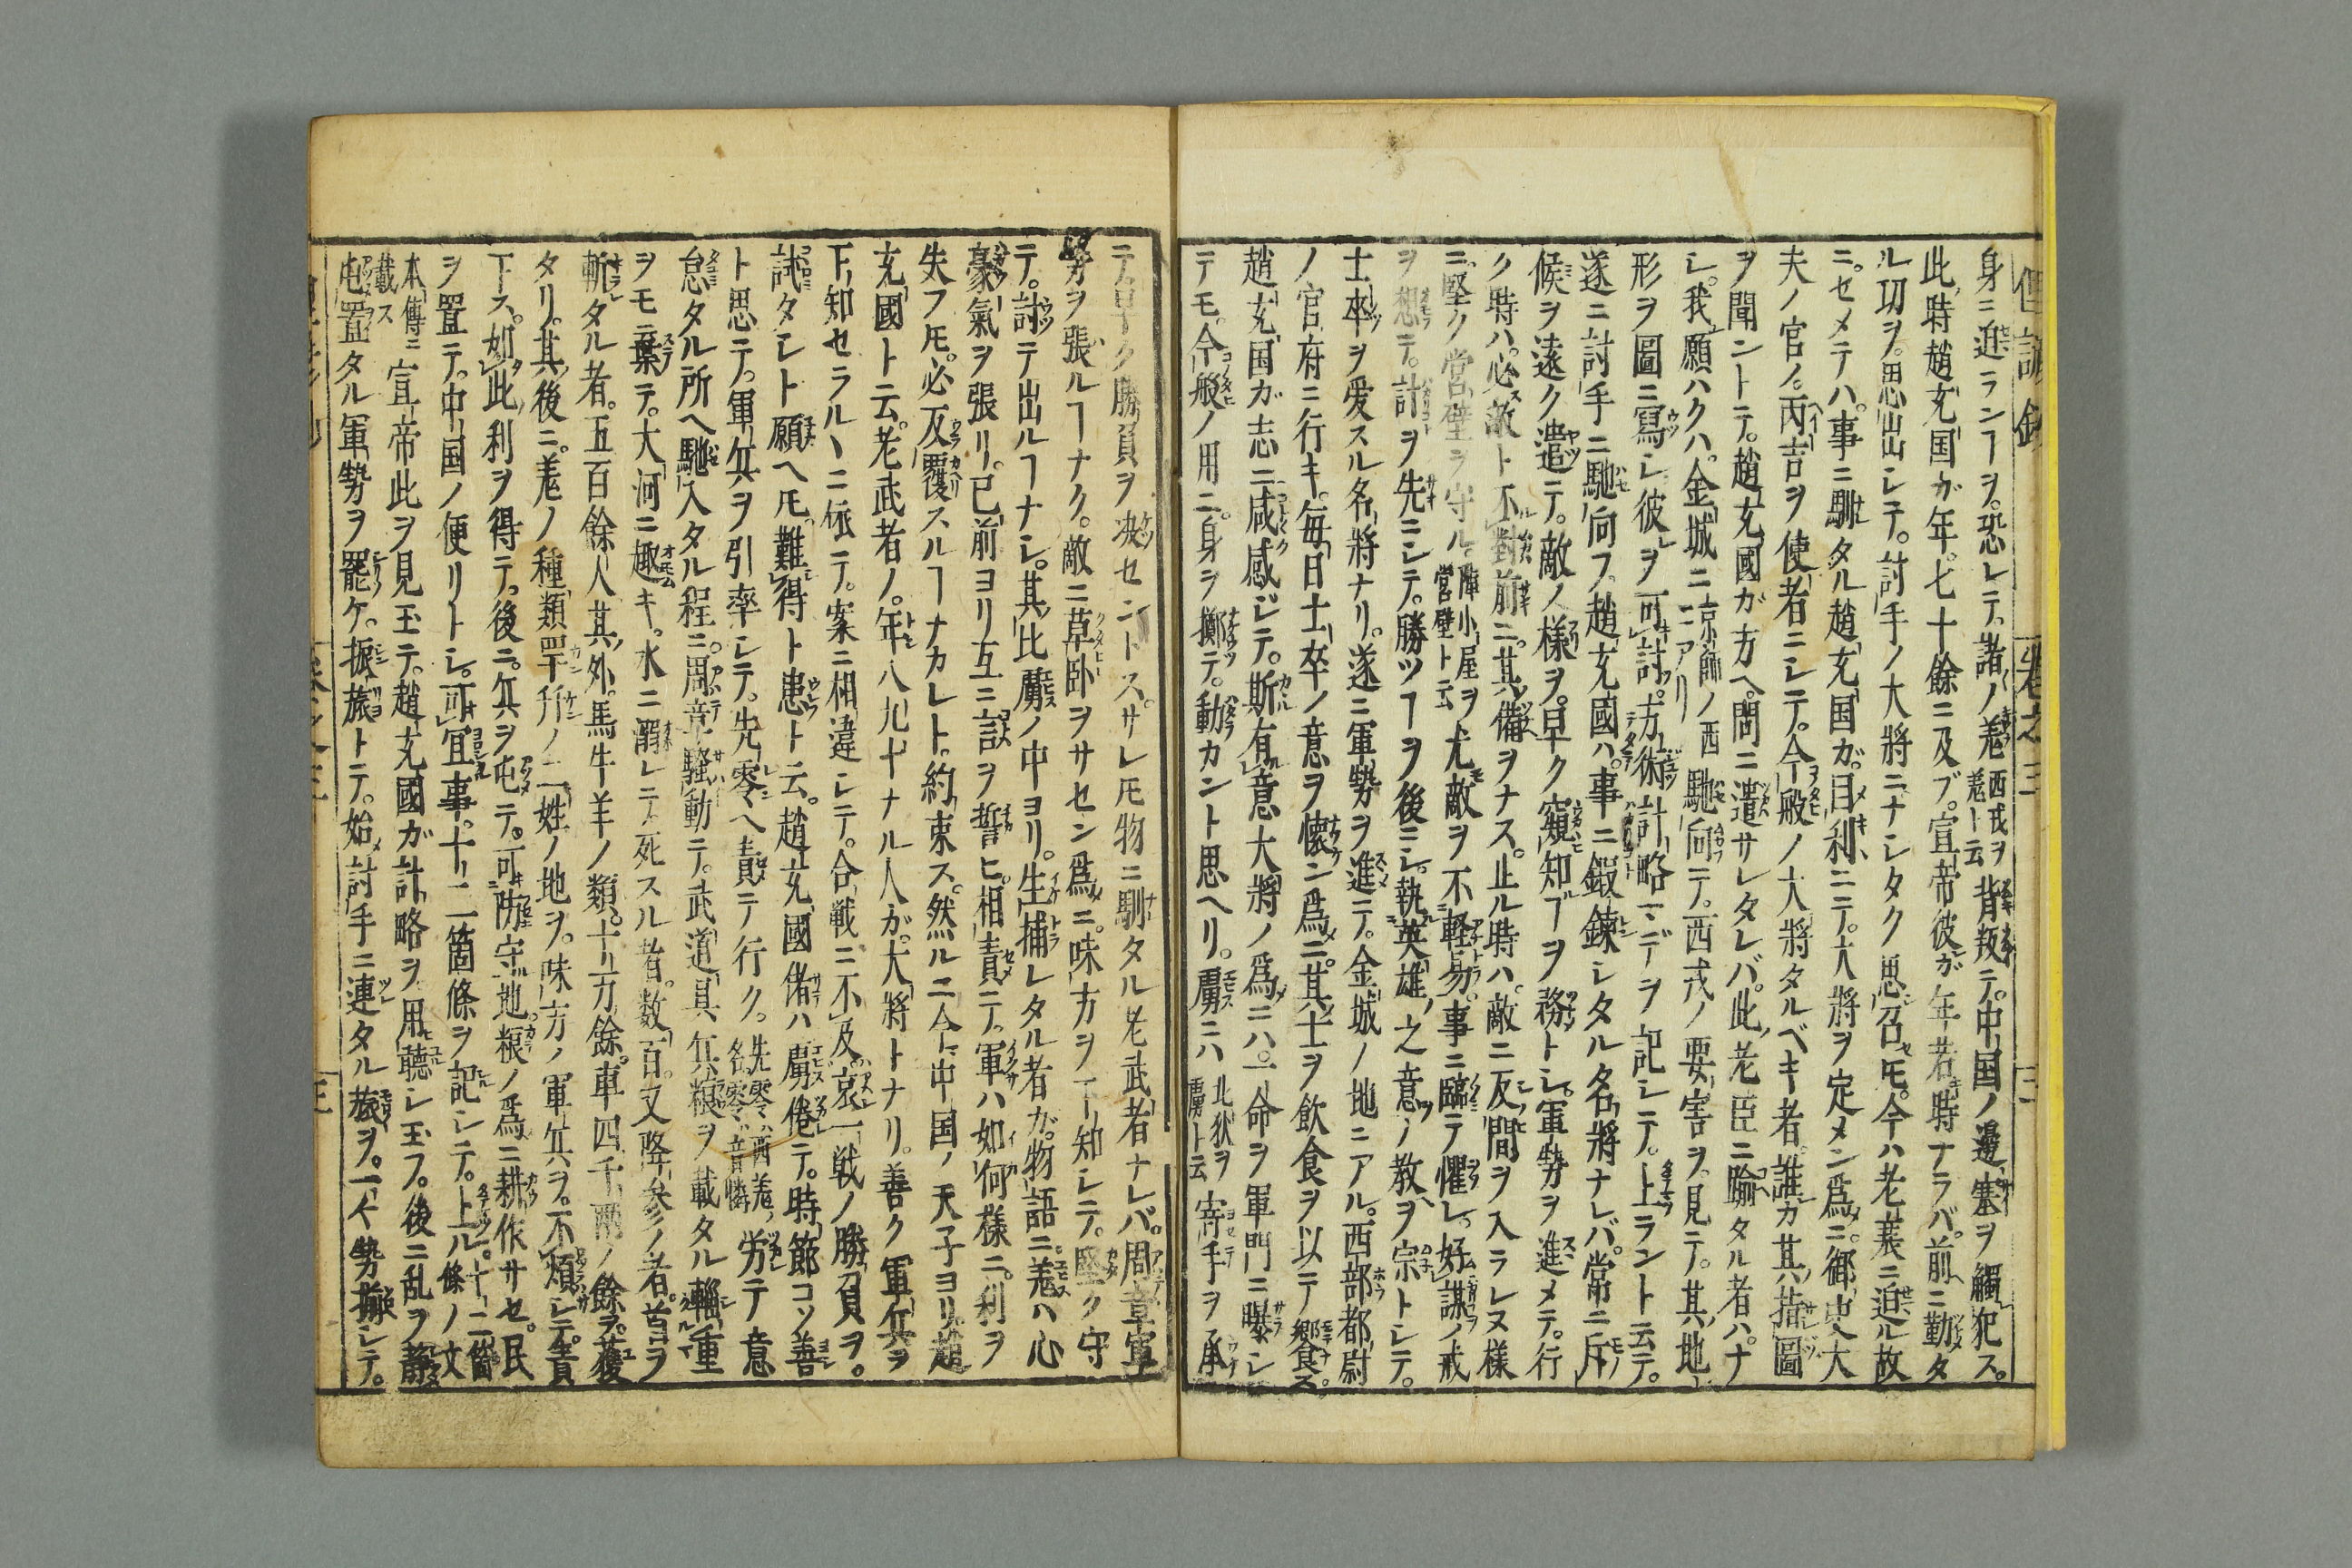 身ニ迯ランヿヲ。恐レテ。諸ノ羗西戎ヲ羗ト云背叛テ。中国ノ邊塞ヲ觸犯ス。
此時趙充国ガ年。七十餘ニ及ブ。宣帝彼ガ年若時ナラバ。前ニ勤タ
ル功ヲ。思出レテ。討手ノ大將ニナレタク思召𪜈。今ハ老衰ニ迫ル故
ニ。セメテハ。事ニ馴タル趙充国ガ。目利ニテ。大將ヲ定メン爲ニ。御史大
夫ノ官ノ。丙吉ヲ使者ニシテ。今般ノ大將タルベキ者。誰カ其指圖
ヲ聞ントテ。趙充國ガ方ヘ。問ニ遣サレタレバ。此老臣ニ踰タル者ハ。ナ
シ。我願ハクハ。金城ニ京師ノ西ニアリ馳向テ。西戎ノ要害ヲ。見テ。其地
形ヲ圖ニ寫シ。彼ヲ可討。方術計略マデヲ記シテ。上ラント云テ。
遂ニ討手ニ馳向フ。趙充國ハ。事ニ鍛錬シタル名將ナレバ。常ニ斥
候ヲ遠ク遣テ。敵ノ樣ヲ。早ク窺知ヿヲ務トシ。軍勢ヲ進メテ。行
ク時ハ。必敵ト不對前ニ。其備ヲナス。止ル時ハ。敵ニ反間ヲ入ラレヌ様
ニ。堅ク營壁ヲ守ル。陣小屋ヲ營壁ト云尤敵ヲ不軽易。事ニ臨テ懼レ。好謀ノ戒
ヲ想テ。計ヲ先ニシテ。勝ツヿヲ後ニシ。執英雄之意ノ教ヲ宗トシテ。
士卒ヲ愛スル名將ナリ。遂ニ軍勢ヲ進テ。金城ノ地ニアル。西部都尉
ノ官府ニ行キ。毎日士卒ノ意ヲ懐ン爲ニ。其士ヲ飲食ヲ以テ饗ス。
趙充国ガ志ニ咸感ジテ。斯有意大將ノ爲ニハ。一命ヲ軍門ニ曝シ
テモ。今般ノ用ニ。身ヲ擲テ。動カント思ヘリ。虜ニハ北狄ヲ虜ト云寄手ヲ承
テ。早ク勝負ヲ决セントス。サレ𪜈物ニ馴タル老武者ナレバ。周章軍
勢ヲ張ルヿナク。敵ニ草臥ヲサセン爲ニ。味方ヲ下知シテ。堅ク守
テ。討テ出ルヿナシ。其比虜ノ中ヨリ。生捕レタル者ガ。物語ニ。羗ハ心
豪氣ヲ張リ。已前ヨリ互ニ言ヲ誓ヒ。相責ニテ。軍ハ如何樣ニ。利ヲ
失フ𪜈。必反覆スルヿナカレト。約束ス。然ルニ今中国ノ天子ヨリ。趙
充國ト云。老武者ノ。年八九十ナル人ガ。大將トナリ。善ク軍兵ヲ
下知セラルヽニ依テ。案ニ相違シテ。合戦ニ不及。哀一戦ノ勝負ヲ。
試タシト願ヘ𪜈。難得ト患ト云。趙充國偖ハ虜倦テ。時節コソ善
ト思テ。軍兵ヲ引率シテ。先零ヘ責テ行ク。先零ハ西羗ノ名零ハ音憐労テ意
怠タル所ヘ馳入タル程ニ。周章騷動テ。武道具兵粮ヲ載タル輜重
ヲモ棄テ。大河ニ趣キ。水ニ溺レテ死スル者。数百。又降参ノ者。首ヲ
斬タル者。五百餘人其外。馬牛羊ノ類。十万餘。車四千兩ノ餘ヲ。獲
タリ。其後ニ。羗ノ種類罕幵ノ二姓ノ地ヲ。味方ノ軍兵ヲ。不煩シテ。責
下ス。如此利ヲ得テ。後ニ。兵ヲ屯テ。可防守地。粮ノ爲ニ耕作サセ。民
ヲ置テ。中国ノ便リトシ。可宜事。十二箇條ヲ記シテ。上ル。十二箇條ノ文
本傳ニ載ス宣帝此ヲ見玉テ。趙充國ガ計略ヲ。用聽シ玉フ。後ニ乱ヲ靜
屯置タル軍勢ヲ罷ケ。振旅トテ。始討手ニ連タル旅ヲ。一人勢揃シテ。